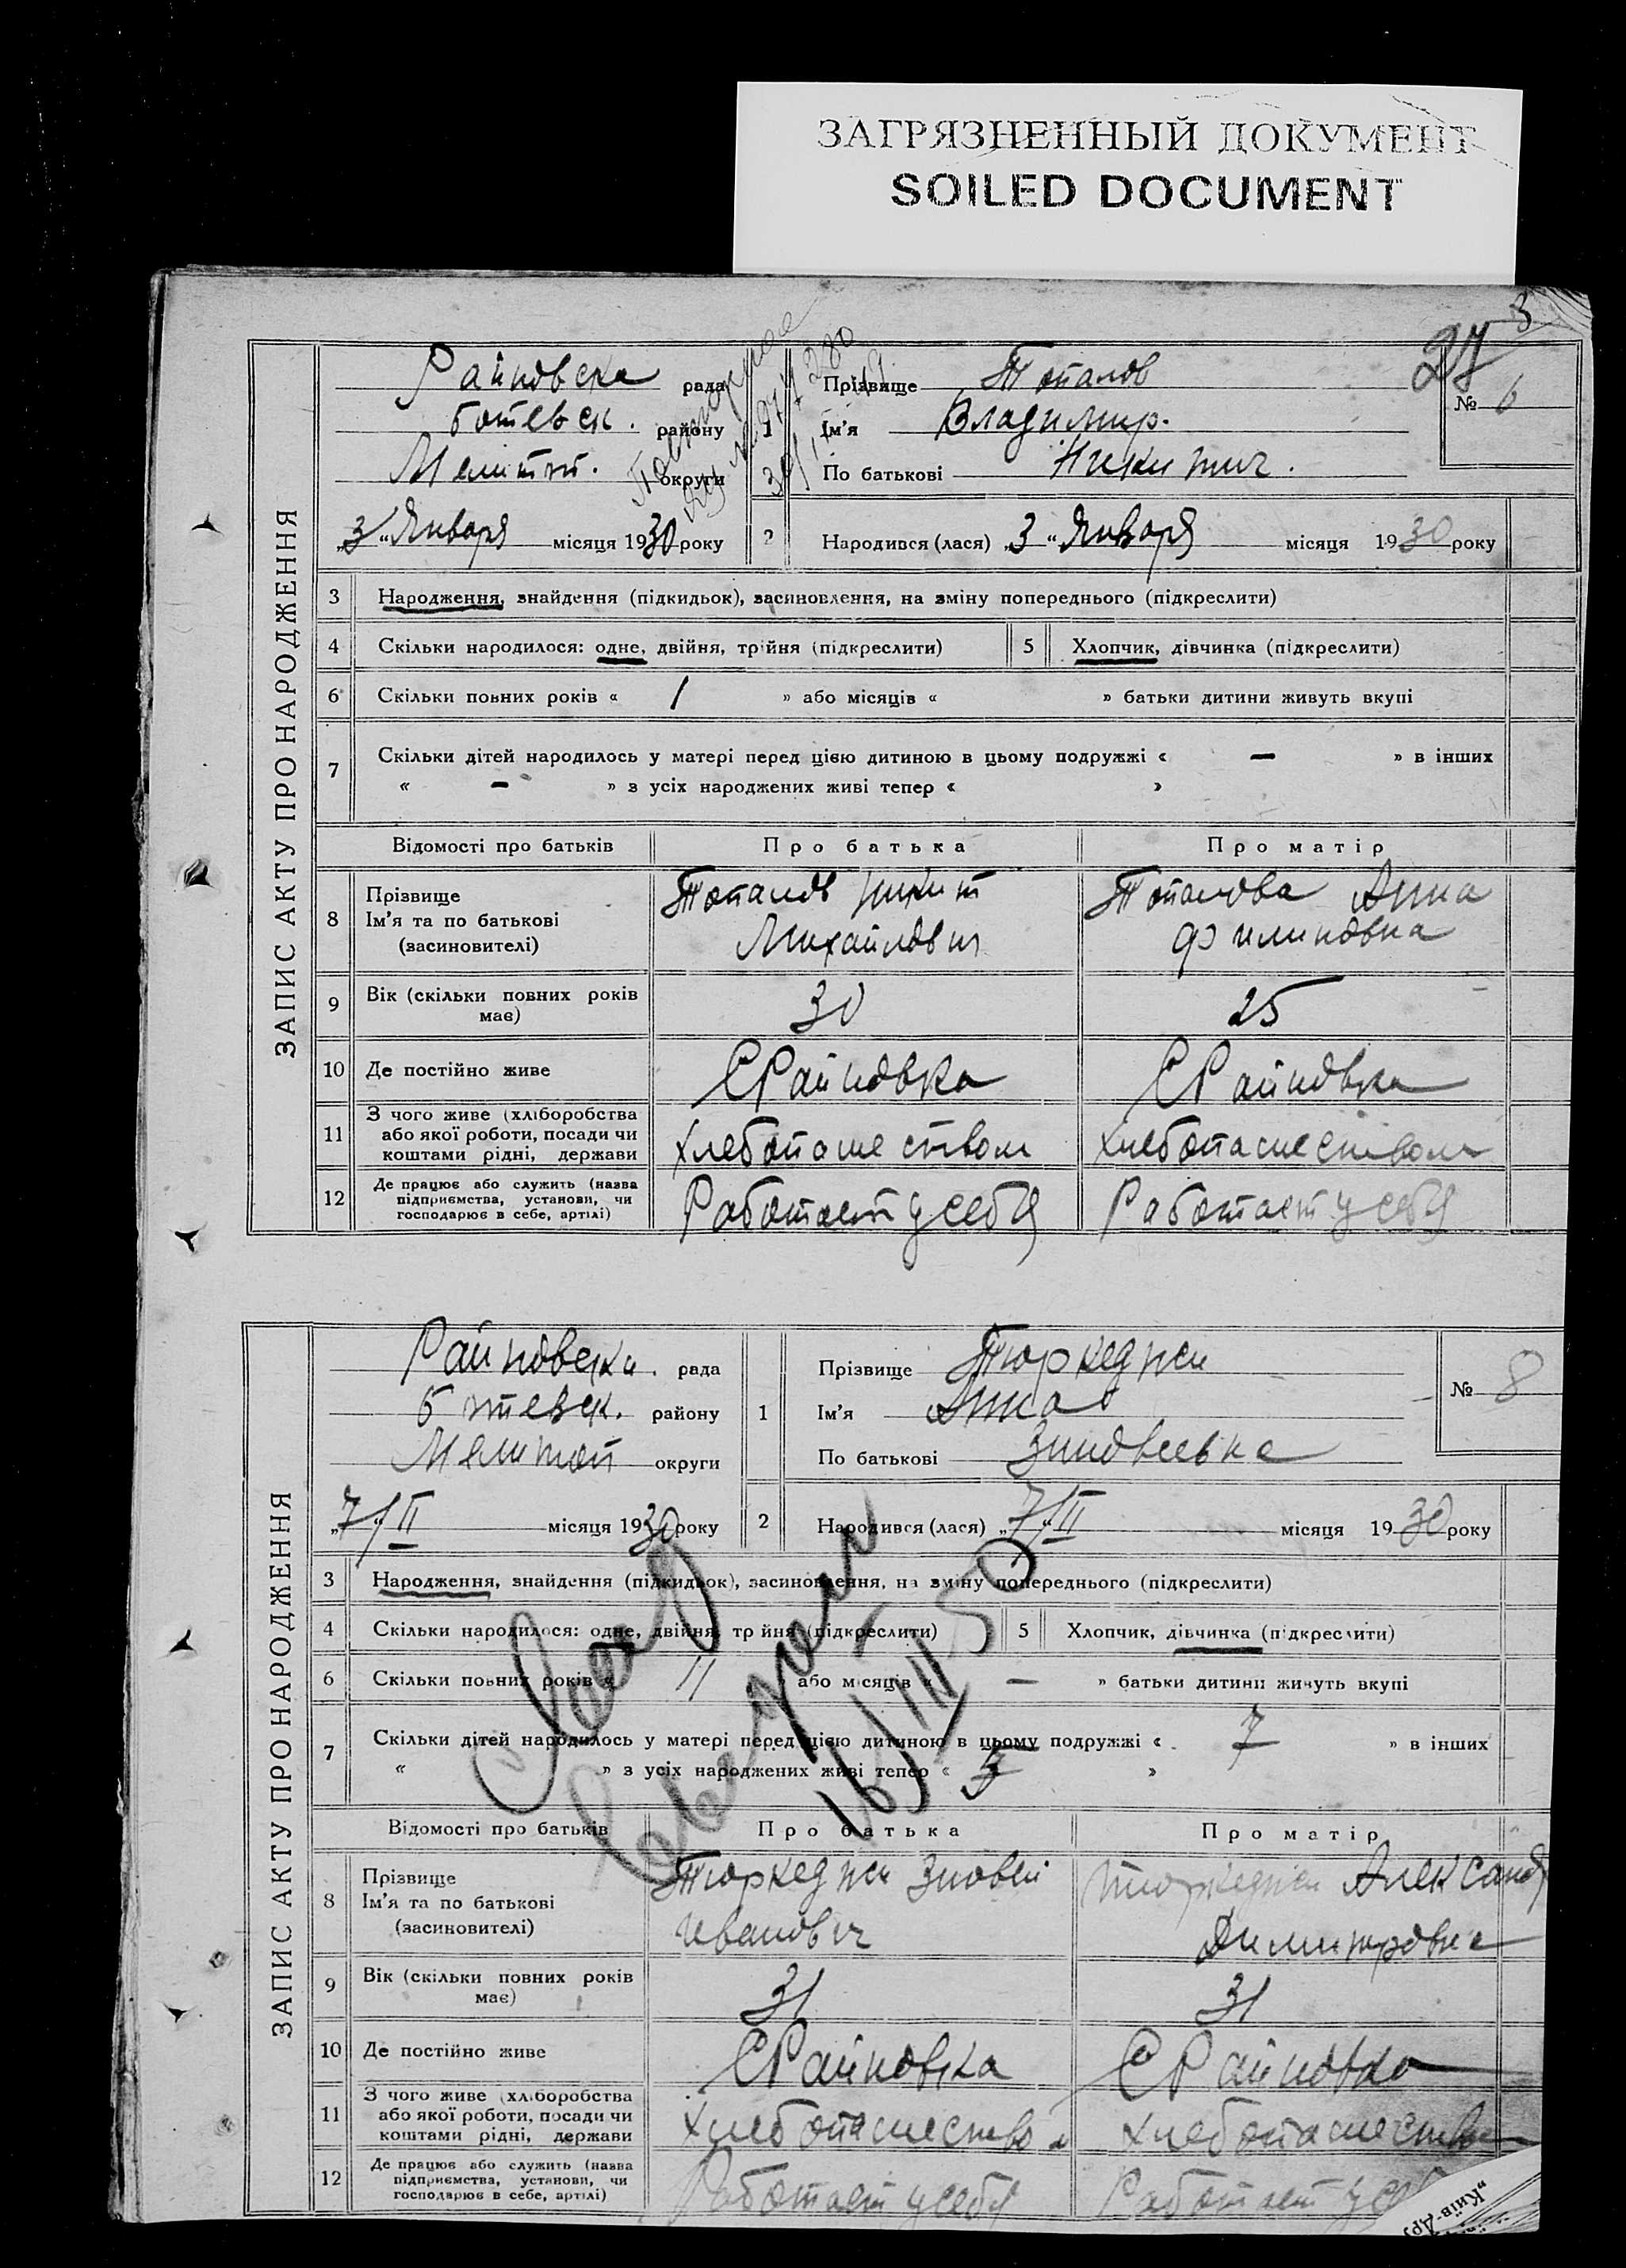 ЗАГРЯЗНЕННЫЙ ДОКУМЕНТ
SOILED DOCUMENT
3
27
ЗАПИС АКТУ ПРО НАРОДЖЕННЯ
Райновска рада
ботевск. району
Мелітоп. округи
„3“ Января місяця 1930 року
1 Прізвище Топалов
Ім'я Владимир.
По батькові Никитич.
№ 6
2 Народився (лася) „3“ Января місяця 1930 року
3 Народження, знайдення (підкидьок), засиновлення, на зміну попереднього (підкреслити)
4 Скільки народилося: одне, двійня, трійня (підкреслити) 5 Хлопчик, дівчинка (підкреслити)
6 Скільки повних років « 1 » або місяців « » батьки дитини живуть вкупі
7 Скільки дітей народилось у матері перед цією дитиною в цьому подружжі « — » в інших
« — » з усіх народжених живі тепер « »
Відомості про батьків Про батька Про матір
8 Прізвище
Ім'я та по батькові
(засиновителі)
Топалов Никит
Михайлович
Топалова Анна
Филиповна
9 Вік (скільки повних років
має)
30 25
10 Де постійно живе СРайновка СРайновка
11 З чого живе (хліборобства
або якої роботи, посади чи
коштами рідні, держави
хлебопашеством хлебопашеством
12 Де працює або служить (назва
підприємства, установи, чи
господарює в себе, артілі)
Работает у себя Работает у себя
ЗАПИС АКТУ ПРО НАРОДЖЕННЯ
Райновски. рада
Ботевск. району
Мелитоп округи
„7“/II місяця 1930 року
1 Прізвище Тюркеджи
Ім'я Анна
По батькові Зиновеевна
№ 8
2 Народився (лася) „7“/II місяця 1930 року
3 Народження, знайдення (підкидьок), засиновлення, на зміну попереднього (підкреслити)
4 Скільки народилося: одне, двійня, трійня (підкреслити) 5 Хлопчик, дівчинка (підкреслити)
6 Скільки повних років « 11 або місяців « — » батьки дитини живуть вкупі
7 Скільки дітей народилось у матері перед цією дитиною в цьому подружжі « 7 » в інших
« » з усіх народжених живі тепер « 5 »
16/III-50
Відомості про батьків Про батька Про матір
8 Прізвище
Ім'я та по батькові
(засиновителі)
Тюркеджи Зновей
Иванович
Тюркеджи Александ
Димитровна
9 Вік (скільки повних років
має)
31 31
10 Де постійно живе СРайновка СРайновка
11 З чого живе (хліборобства
або якої роботи, посади чи
коштами рідні, держави
хлебопашеством хлебопашество
12 Де працює або служить (назва
підприємства, установи, чи
господарює в себе, артілі)
Работает у себя Работает у себ
„Київ-Др